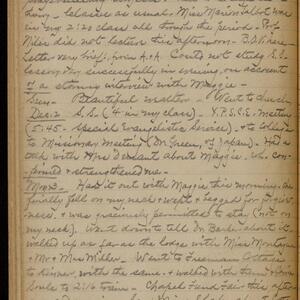 Lacy. Celeste as usual. Miss Marion Talbot was
in my 2:20 class all through the period. Prof.
did not lecture this afternoon. B.D. Here.
Letter very brief, from A.A. Could not study S.S.
lesson very successfully in evening, on account
of a stormy interview with Maggie.
Sun. Beautiful weather. Went to church
Dec. 2 S.S. (4 in my class). Y.P.S.C.E. meeting
(5:45. Special Evangelistic Service), & to College
to Missionary Meeting (Dr. Green, of Japan). Had a
talk with Mrs. about Maggie. She com-
forted & strengthened me.
Mon. 3. Had it out with Maggie this morning. She
finally fell on my neck & wept & begged for forgive-
ness, & was graciously permitted to stay (not on
my neck). Went down to all Dr. about it.
walked up as far as the lodge with Miss Montague
& Mr. & Mrs. Went to Freeman Cottage
to dinner with the same. & walked with them
to 2:16 train. Chapel Fund Fair this after-